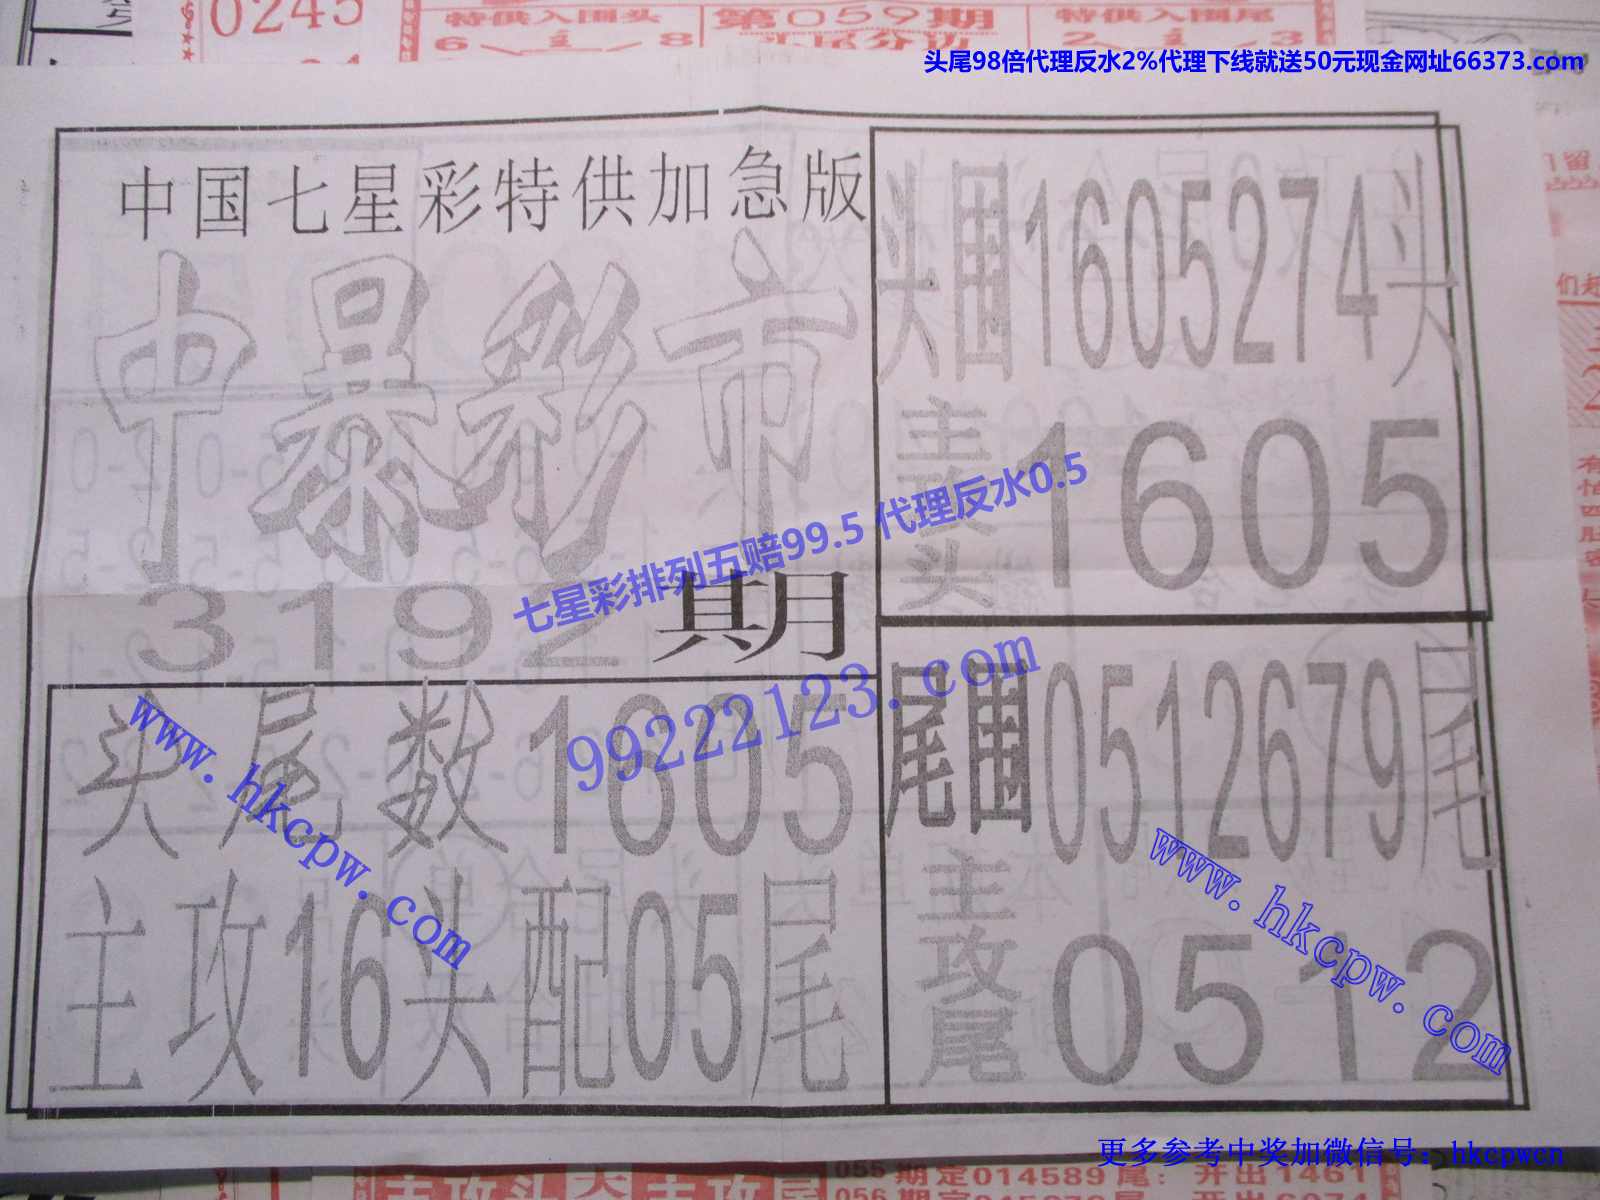 0245
特供入围头
第059期
特供入围尾
头尾98倍代理反水2%代理下线就送50元现金网址66373.com
中国七星彩特供加急版
中暴彩市
3192期
头尾数1605
主攻16头配05尾
头围1605274头
主攻头1605
尾围0512679尾
主攻尾0512
七星彩排列五赔99.5 代理反水0.5
99222123.com
www.hkcpw.com
www.hkcpw.com
更多参考中奖加微信号：hkcpwcn
055期定014589尾：开出1461